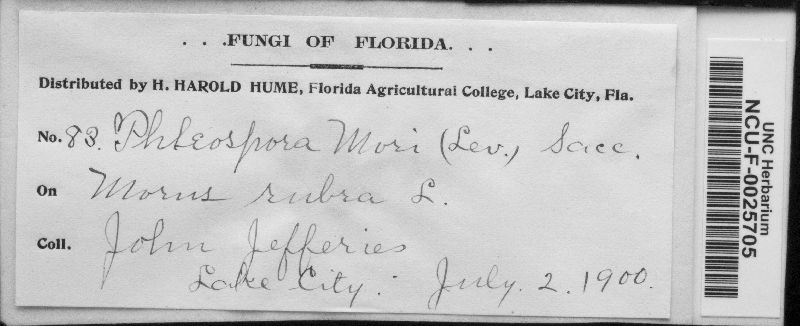 . . .FUNGI OF FLORIDA. . .
Distributed by H. HAROLD HUME, Florida Agricultural College, Lake City, Fla.
No. 83. Phleospora Mori (Lev.) Sacc.
On Morus rubra L.
Coll. John Jefferies
Lake City. July. 2. 1900.
UNC Herbarium
NCU-F-0025705